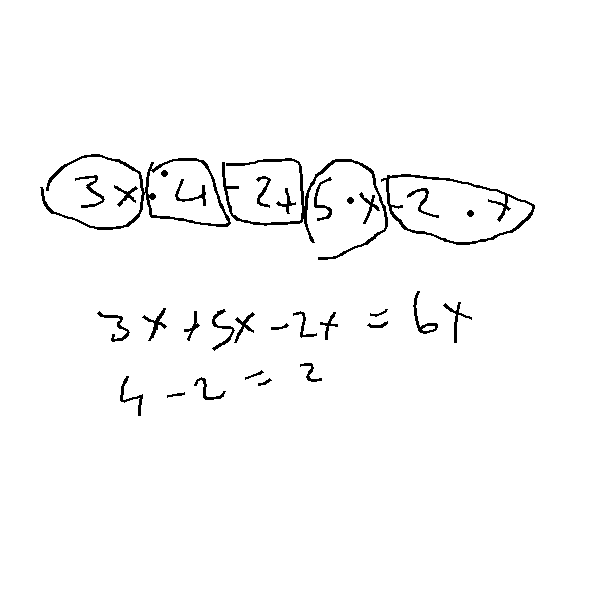 3x·4-2+5·x-2·x
3x+5x-2x=6x
4-2=2